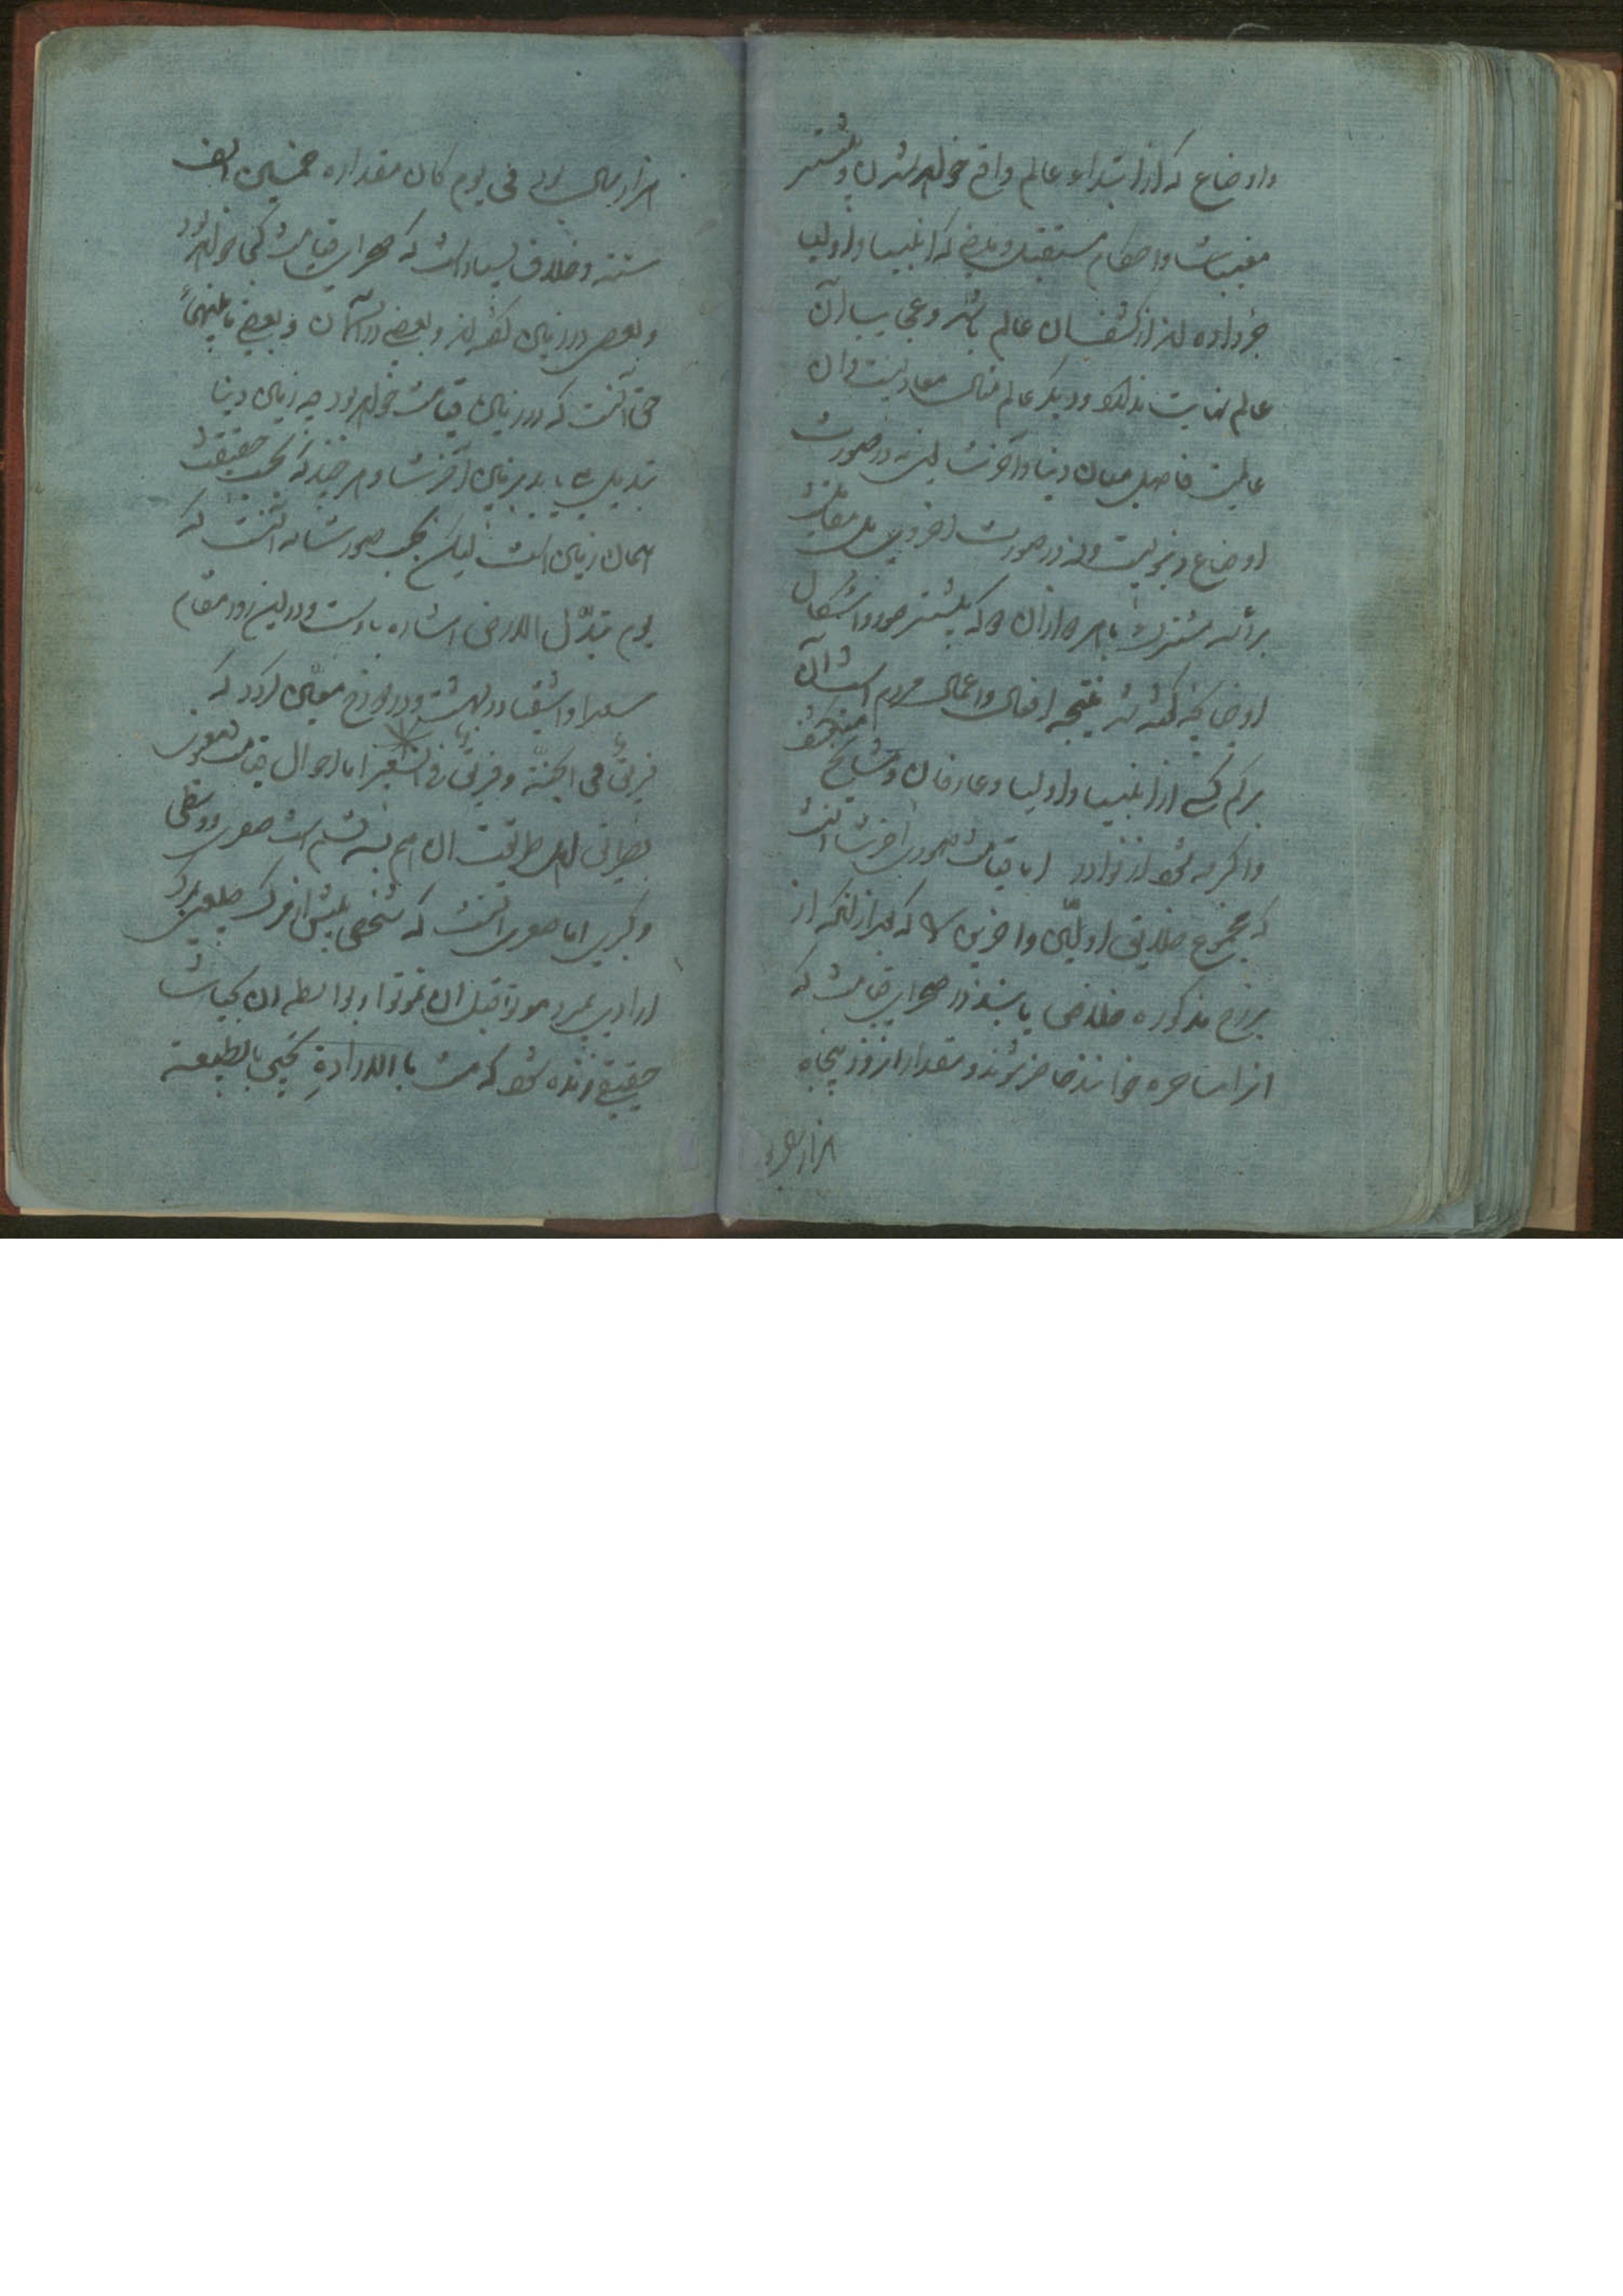 واوضاع که از ابتداء عالم واقع خواهد شدن و بیشتر
مغیبات و احکام مستقبل و ماضی که انبیا و اولیا
خبر داده اند از کشف آن عالم باشد و عجایب آن
عالم نهایت ندارد و دیگر عالم مثال معادیست و آن
عالمیست فاصل میان دنیا و آخرت لیک نه در صورت
اوضاع دنیویست و نه در صورت اخروی بل
برزخ مشترک که بیشتر صور و اشکال
اوضاعی که گفته شد نتیجه افعال و اعمال مردم است آن
بر هر کسی از انبیا و اولیا و عارفان و مشایخ منکشف
و اگر نه شود از نوادر اما قیامت صوری آخرت آنست
که مجموع خلایق اولین و آخرین که بعد از آنکه از
برزخ مذکوره خلاص یابند در صحرای قیامت که
انرا ساهره خوانند حاضر شوند و مقدار آن روز پنجاه
هزار سال بود
هزار سال بود فی یوم کان مقداره خمسین الف
سنة و خلاف بسیار است که صحرای قیامت کجا خواهد بود
و بعضی در زمین گفته اند و بعضی در آسمان و بعضی ما بینهما
حق آنست که در زمین قیامت خواهد بود چه زمین دنیا
تبدیل یابد بزمین آخرت و هر چند که بحسب حقیقت
همان زمین است لیکن بحسب صورت نه آنست که
یوم تبدّل الارض اشاره باوست و در این روز مقام
سعدا و اشقیا در بهشت و دوزخ معیّن گردد که
فریق فی الجنّة و فریق فی السّعیر اما احوال قیامت معنوی
بطریق اهل طریقت آن هم سه قسم است صغری و وسطی
و کبری اما صغری آنست که شخصی پیش از مرگ طبیعی بمرگ
ارادی بمیرد موتوا قبل ان تموتوا و بواسطه آن بحیات
حقیقی زنده شود که مت بالارادةِ تحیی بالطبیعة